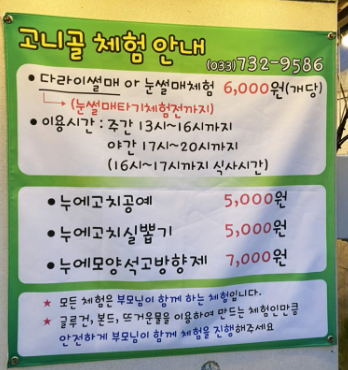 고니골 체험 안내
(033)732-9586
• 다라이썰매 or 눈썰매체험 6,000원(개당)
(눈썰매타기체험전까지)
• 이용시간 : 주간 13시~16시까지
야간 17시~20시까지
(16시~17시까지 식사시간)
• 누에고치공예 5,000원
• 누에고치실뽑기 5,000원
• 누에모양석고방향제 7,000원
★ 모든 체험은 부모님이 함께 하는 체험입니다.
★ 글루건, 본드, 뜨거운물을 이용하여 만드는 체험인만큼
안전하게 부모님이 함께 체험을 진행해주세요